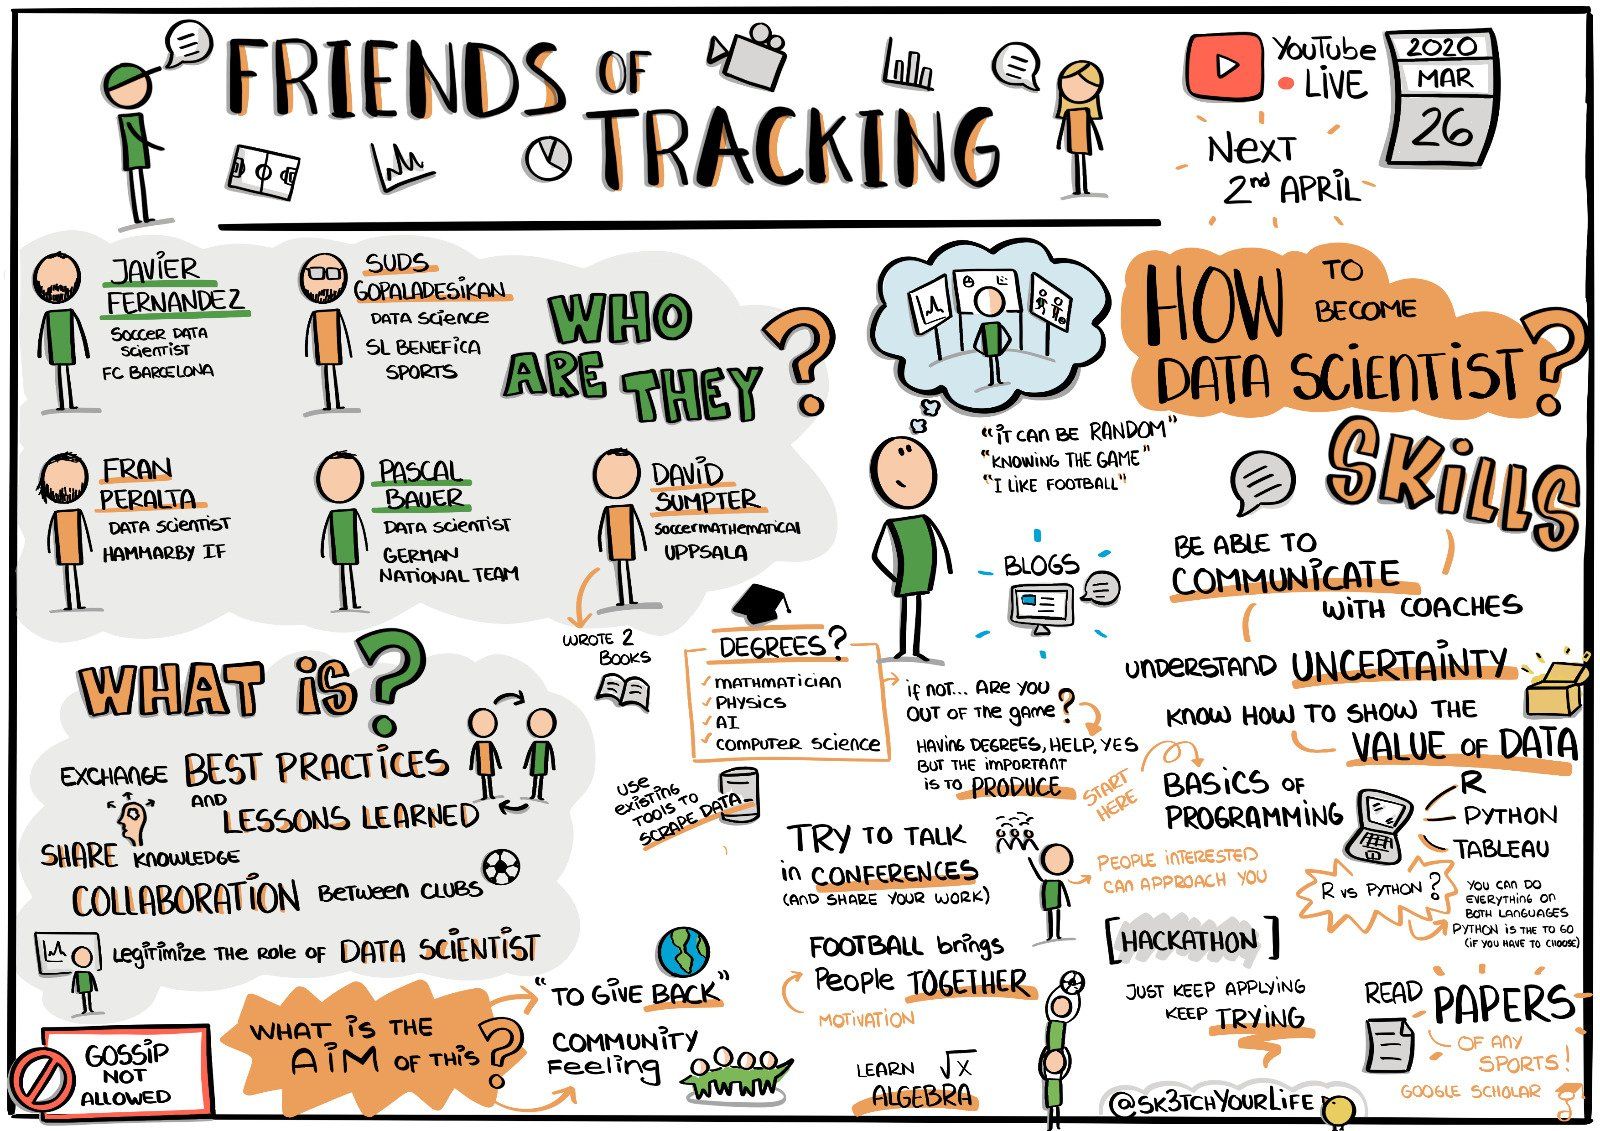 FRIENDS OF
TRACKING
YouTube
LIVE
2020
MAR
26
NEXT
2nd APRIL
JAVIER
FERNANDEZ
SOCCER DATA
SCIENTIST
FC BARCELONA
SUDS
GOPALADESIKAN
DATA SCIENCE
SL BENEFICA
SPORTS
WHO
ARE THEY?
FRAN
PERALTA
DATA SCIENTIST
HAMMARBY IF
PASCAL
BAUER
DATA SCIENTIST
GERMAN
NATIONAL TEAM
DAVID
SUMPTER
SOCCERMATHEMATICAL
UPPSALA
WROTE 2
BOOKS
WHAT IS?
EXCHANGE BEST PRACTICES
AND
LESSONS LEARNED
SHARE KNOWLEDGE
COLLABORATION BETWEEN CLUBS
LEGITIMIZE THE ROLE OF DATA SCIENTIST
GOSSIP
NOT
ALLOWED
WHAT IS THE
AIM OF THIS?
"TO GIVE BACK"
COMMUNITY
FEELING
HOW TO
BECOME
DATA SCIENTIST?
"IT CAN BE RANDOM"
"KNOWING THE GAME"
"I LIKE FOOTBALL"
BLOGS
DEGREES?
MATHMATICIAN
PHYSICS
AI
COMPUTER SCIENCE
IF NOT... ARE YOU
OUT OF THE GAME?
HAVING DEGREES, HELP, YES
BUT THE IMPORTANT
IS TO PRODUCE
USE
EXISTING
TOOLS TO
SCRAPE DATA
TRY TO TALK
IN CONFERENCES
(AND SHARE YOUR WORK)
PEOPLE INTERESTED
CAN APPROACH YOU
FOOTBALL BRINGS
PEOPLE TOGETHER
MOTIVATION
LEARN √x
ALGEBRA
SKILLS
BE ABLE TO
COMMUNICATE
WITH COACHES
UNDERSTAND UNCERTAINTY
KNOW HOW TO SHOW THE
VALUE OF DATA
START
HERE
BASICS OF
PROGRAMMING
R
PYTHON
TABLEAU
R VS PYTHON?
YOU CAN DO
EVERYTHING ON
BOTH LANGUAGES
PYTHON IS THE TO GO
(IF YOU HAVE TO CHOOSE)
[HACKATHON]
JUST KEEP APPLYING
KEEP TRYING
READ PAPERS
OF ANY
SPORTS!
GOOGLE SCHOLAR
@SK3TCHYOURLIFE